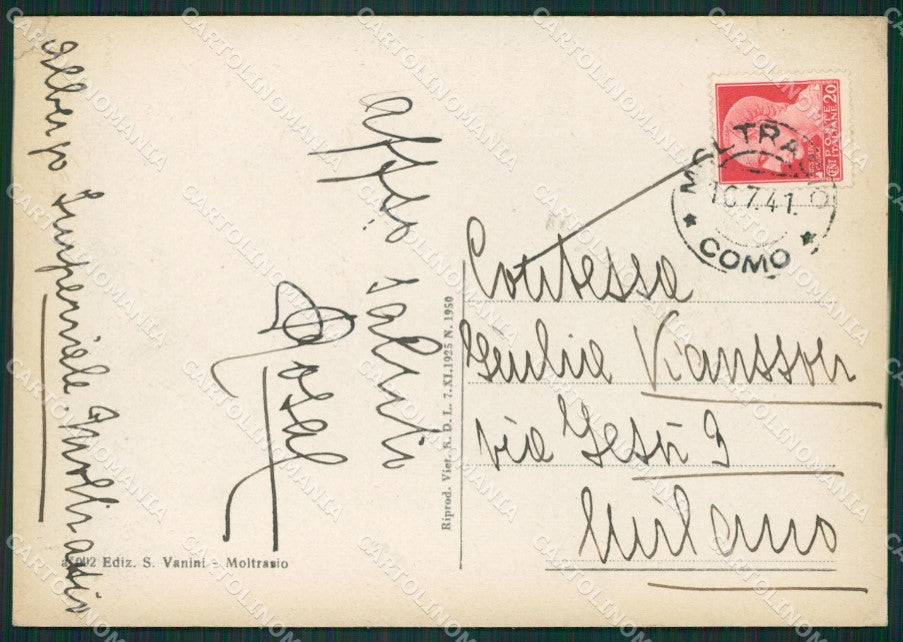 Albergo Imperiale. Moltrasio
affsi saluti
Contessa
Giulia
via Gesù 9
Milano
MOLTRASIO
16.7.41.
* COMO *
POSTE ITALIANE
CENT 20
Riprod. Viet. R. D. L. 7.XI.1925 N. 1950
Ediz. S. Vanini - Moltrasio
CARTOLINOMANIA